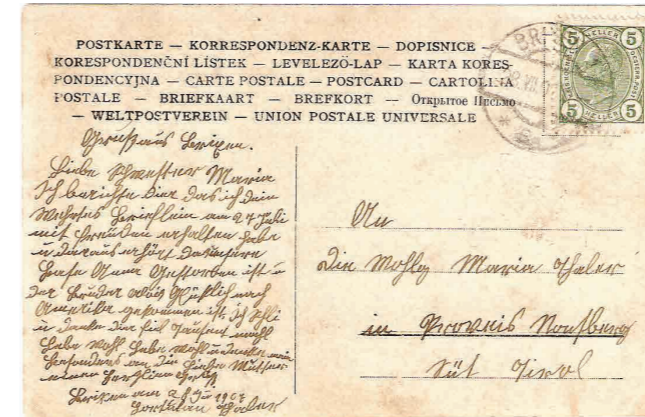 POSTKARTE — KORRESPONDENZ-KARTE — DOPISNICE —
KORESPONDENČNÍ LÍSTEK — LEVELEZÖ-LAP — KARTA KORES-
PONDENCYJNA — CARTE POSTALE — POSTCARD — CARTOLINA
POSTALE — BRIEFKAART — BREFKORT — Открытое Письмо
— WELTPOSTVEREIN — UNION POSTALE UNIVERSALE
5 HELLER 5
5 HELLER 5
BRI
Gruß aus Brixen.
Liebe Schwester Maria
Ich berichte Dir das ich dein
Wehrtes Brieflein am 27 Juli
mit Freuden erhalten habe
u daraus
Base Anna Gestorben ist u
der Bruder Alois Glüklich nach
Amerika gekommen ist. Ich
u danke Dir fiel Tausent mahl
Lebe Wohl Lebe Wohl
besonders an die Liebe Mutter
einen Herzlien Gruß
Brixen am
An
Die Wohlg Maria Thaler
in Proveis Nonsberg
Süt Tirol